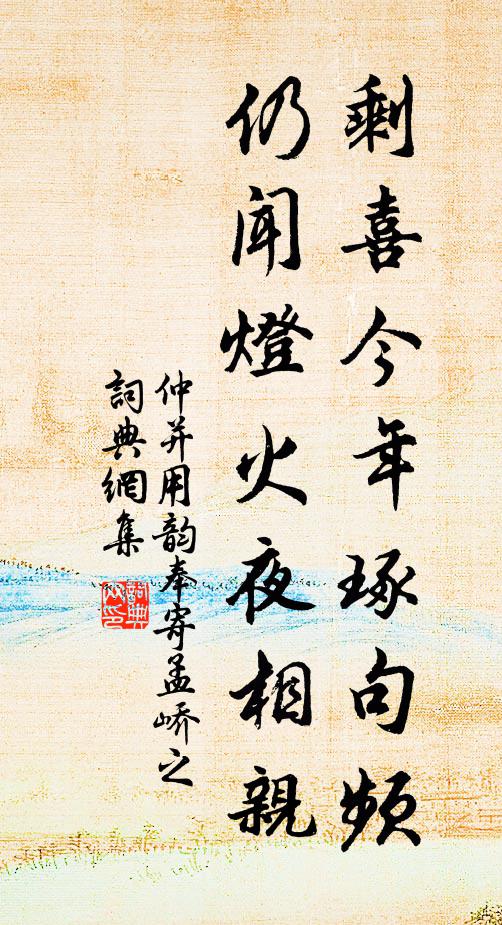 剩喜今年琢句頻
仍闻燈火夜相親
仲并用韵奉寄孟嶠之
詞典網集